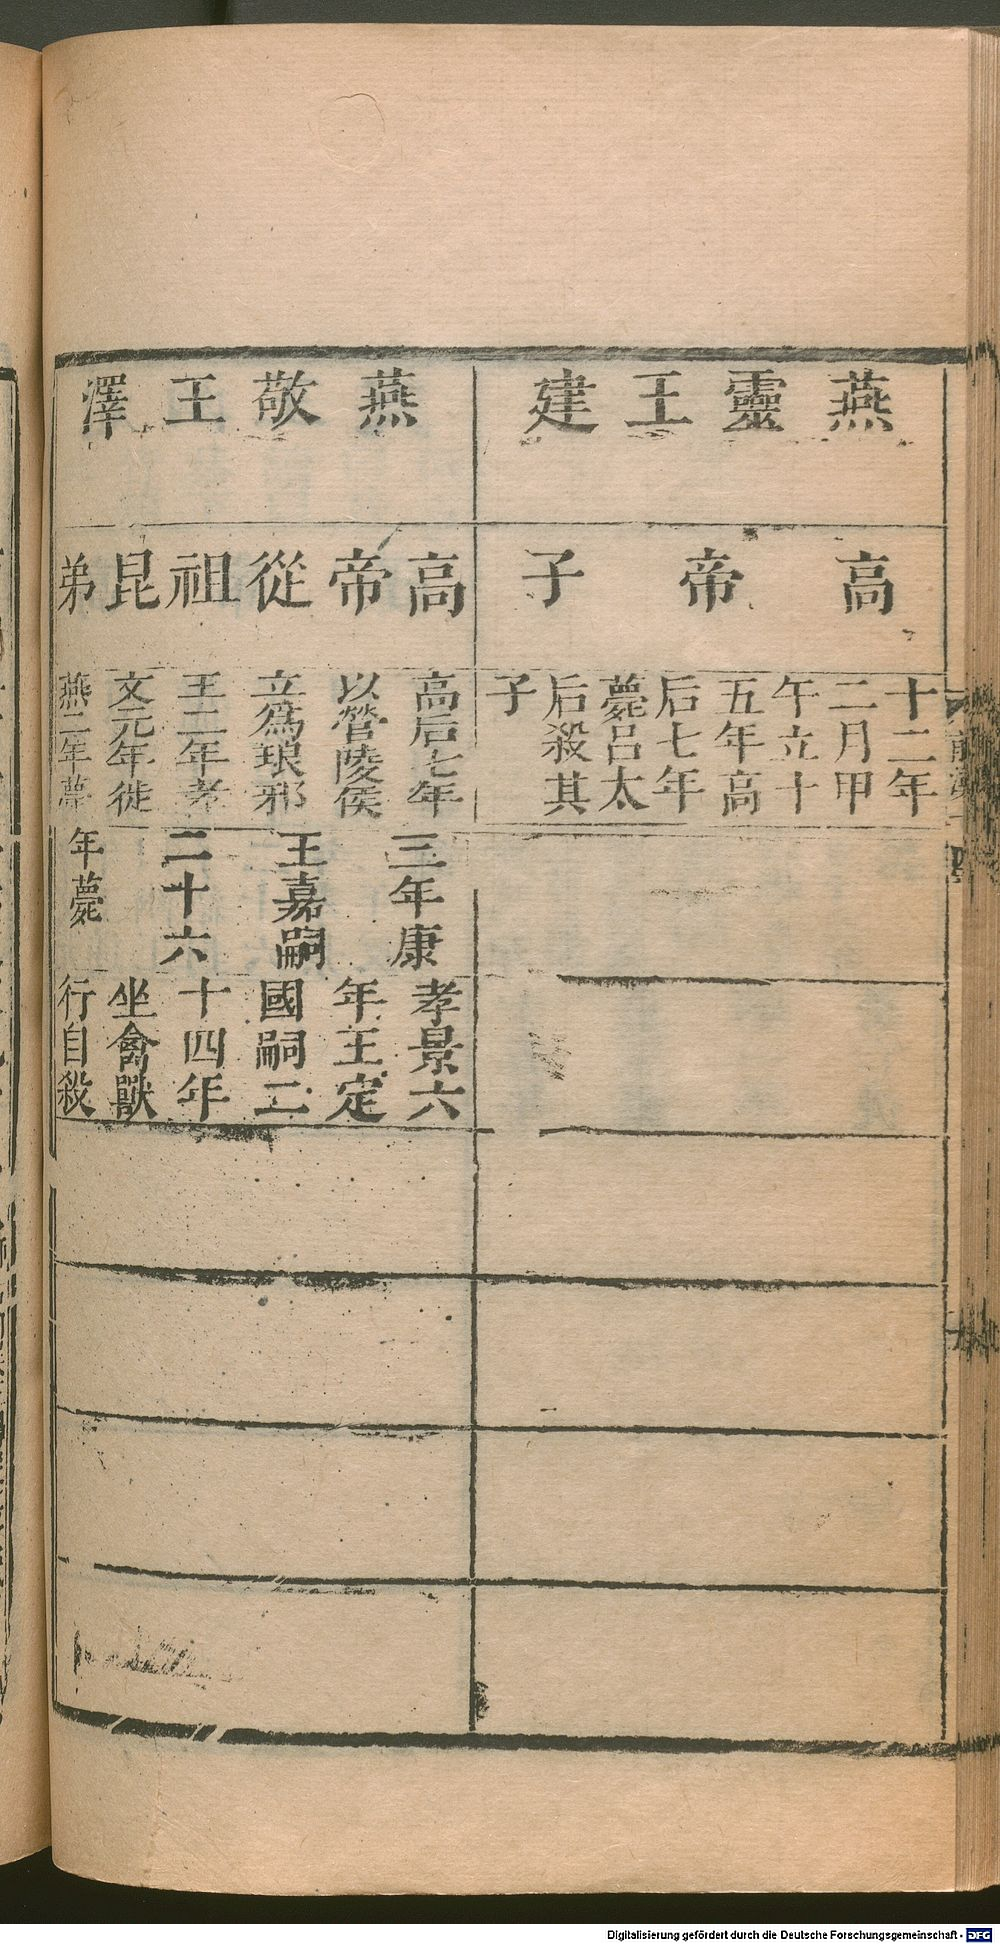 燕靈王建
高帝子
十二年
二月甲
午立十
五年高
后七年
薨呂太
后殺其
子
燕敬王澤
高帝從祖昆弟
高后七年
以營陵侯
立爲琅邪
王二年孝
文元年徙
燕二年薨
三年康
王嘉嗣
二十六
年薨
孝景六
年王定
國嗣二
十四年
坐禽獸
行自殺
Digitalisierung gefördert durch die Deutsche Forschungsgemeinschaft - DFG